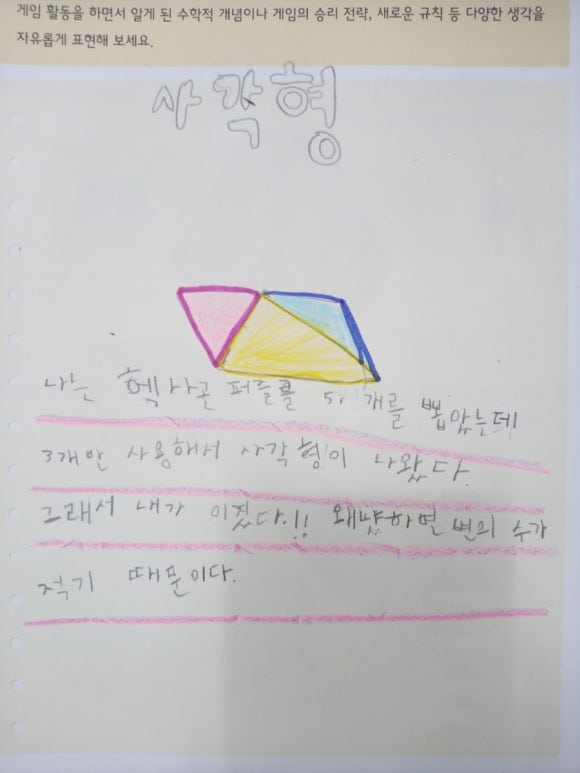 게임 활동을 하면서 알게 된 수학적 개념이나 게임의 승리 전략, 새로운 규칙 등 다양한 생각을
자유롭게 표현해 보세요.
사각형
나는 헥사곤 퍼즐를 5개를 뽑았는데
3개만 사용해서 사각형이 나왔다.
그래서 내가 이겼다.!! 왜냤하면 변의 수가
적기 때문이다.